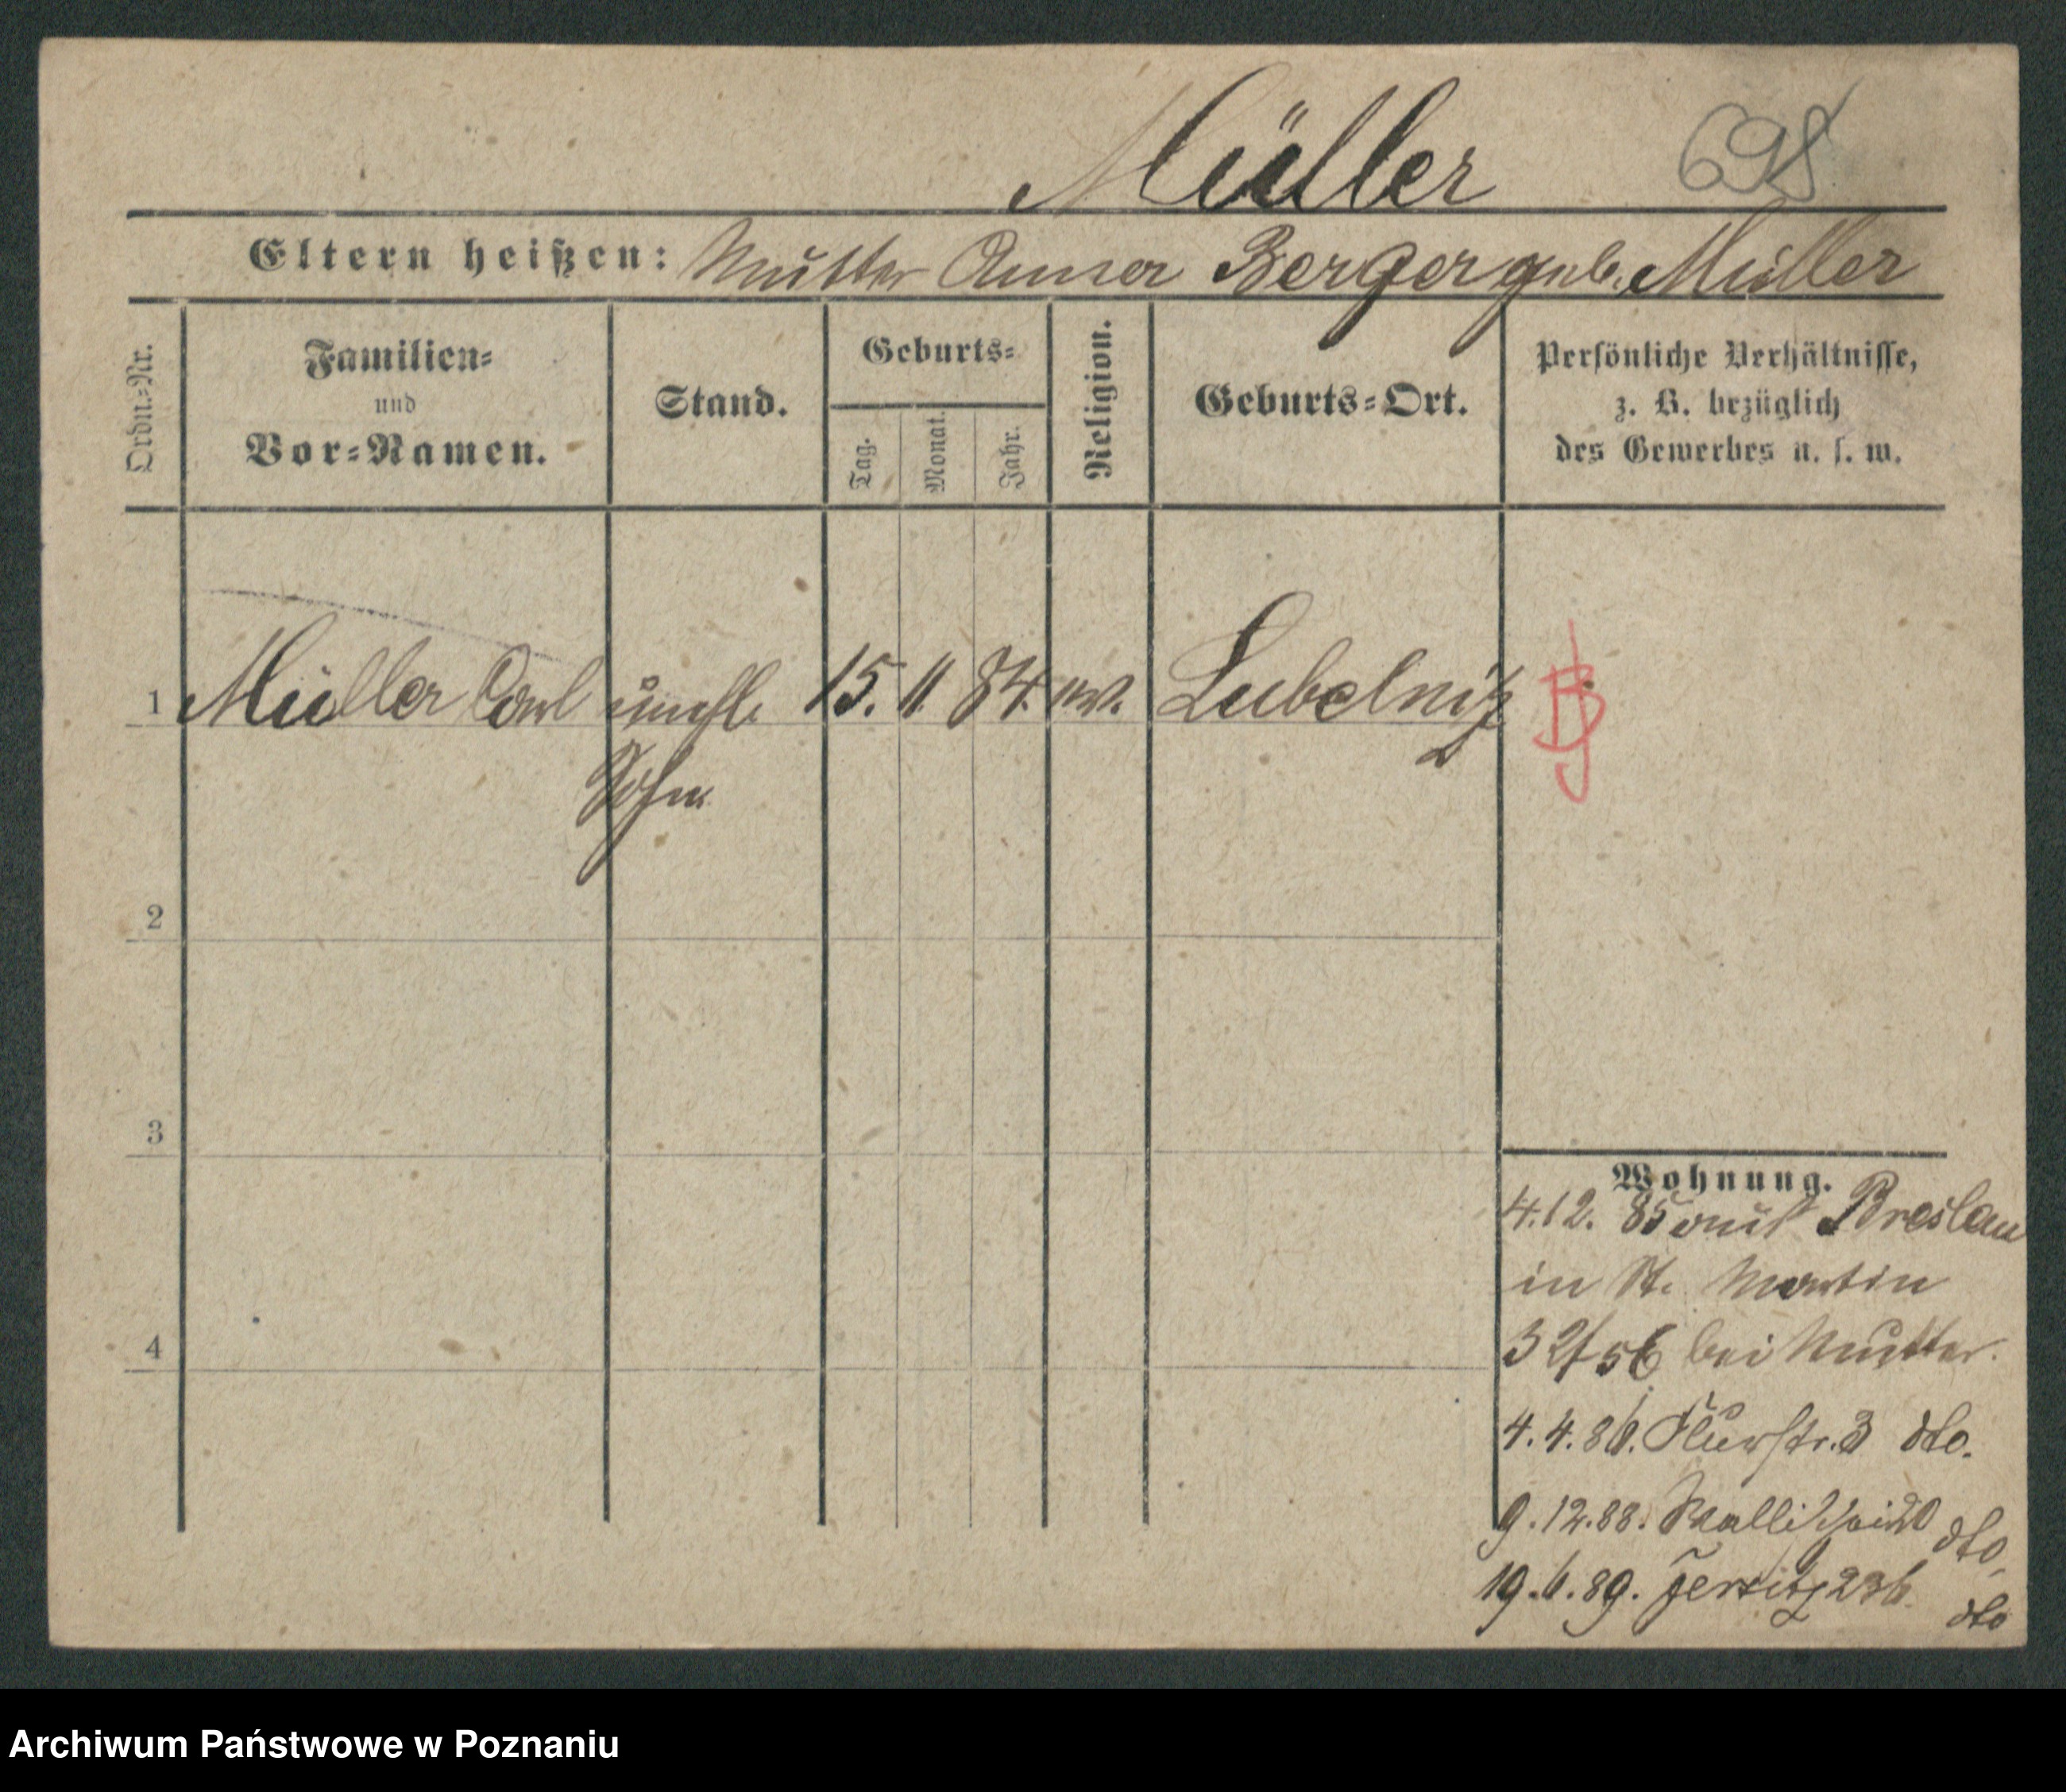 Müller 698
Eltern heißen: Mutter Anna Berger geb. Müller
Ordn.-Nr.
Familien-
und
Vor-Namen.
Stand.
Geburts-
Tag.
Monat.
Jahr.
Religion.
Geburts-Ort.
Persönliche Verhältnisse,
z. B. bezüglich
des Gewerbes u. s. w.
1 Müller Carl unehl. 15. 11. 84. ev. Lubelnitz
Sohn
2
3
4
Wohnung.
4.12. 85 aus Breslau
in St. Martin
bei Mutter.
4. 4. 86. Flurstr. 3 dto.
9. 12. 88. dto
19. 6. 89. Jersitz 236. dto
Archiwum Państwowe w Poznaniu